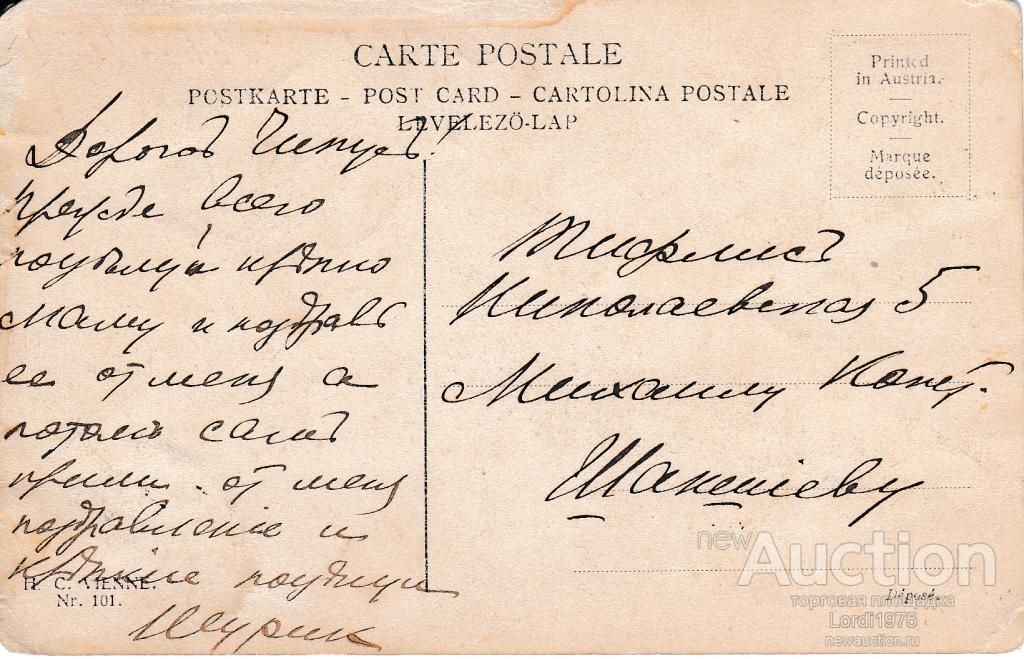 CARTE POSTALE
POSTKARTE - POST CARD - CARTOLINA POSTALE
LEVELEZŐ-LAP
Printed
in Austria.
Copyright.
Marque
déposée.
Дорогой
прежде всего
поцѣлуй крѣпко
маму и поздравь
ее от меня а
потомъ самъ
прими от меня
поздравленіе и
крѣпкие поцѣлуи
Шурик
H. C. VIENNE.
Nr. 101.
Тифлисъ
Николаевская 5
Михаилу Конст.
Шакшіеву
Déposé.
newAuction
торговая площадка
Lordi1975
newauction.ru